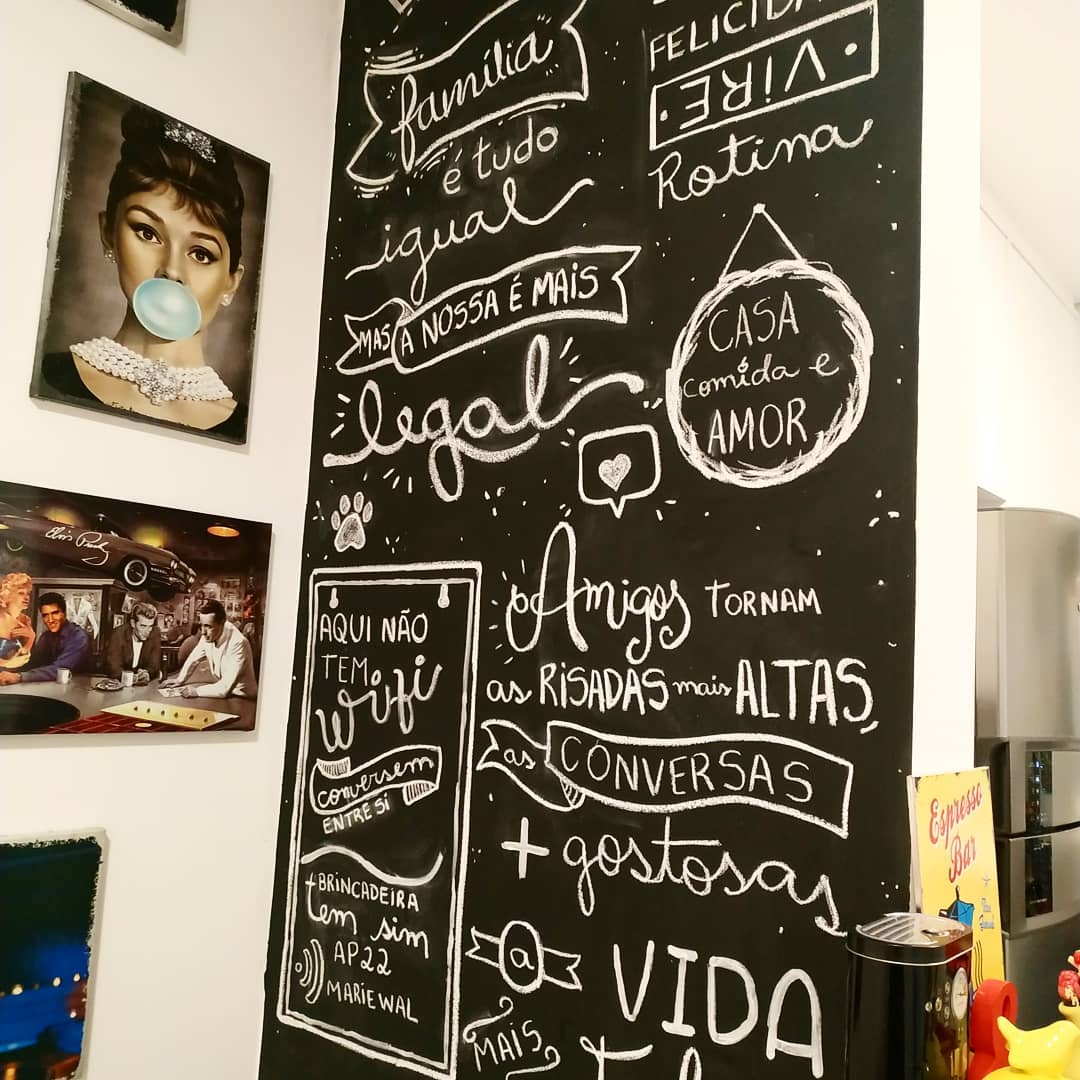 família
é tudo
igual
MAS A NOSSA É MAIS
legal
FELICIDA
VIRE
Rotina
CASA
comida e
AMOR
AQUI NÃO
TEM
wifi
conversem
ENTRE SI
+BRINCADEIRA
tem sim
AP22
MARIEWAL
Amigos TORNAM
as RISADAS mais ALTAS,
as CONVERSAS
+ gostosas
a VIDA
MAIS
Elvis Presley
Espresso
Bar